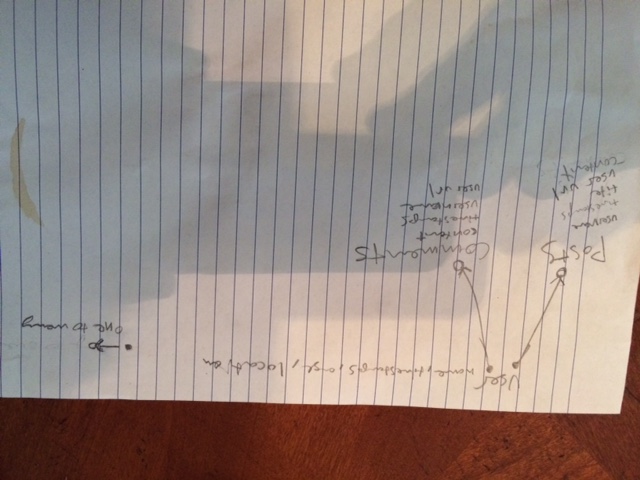 User
name, timestamps, age, location
one to many
Posts
username
timestamps
title
user url
content
Comments
content
timestamps
username
user url